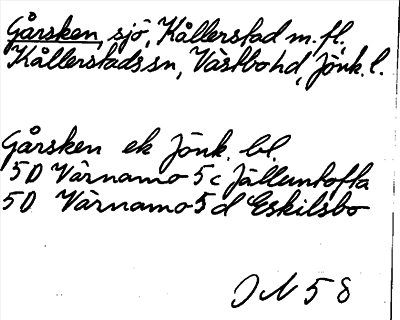 Gårsken, sjö, Kållerstad m.fl.,
Kållerstads sn, Västbo hd, Jönk. l.
Gårsken ek Jönk. bl.
5D Värnamo 5c Jälluntofta
5D Värnamo 5d Eskilsbo
ON 58